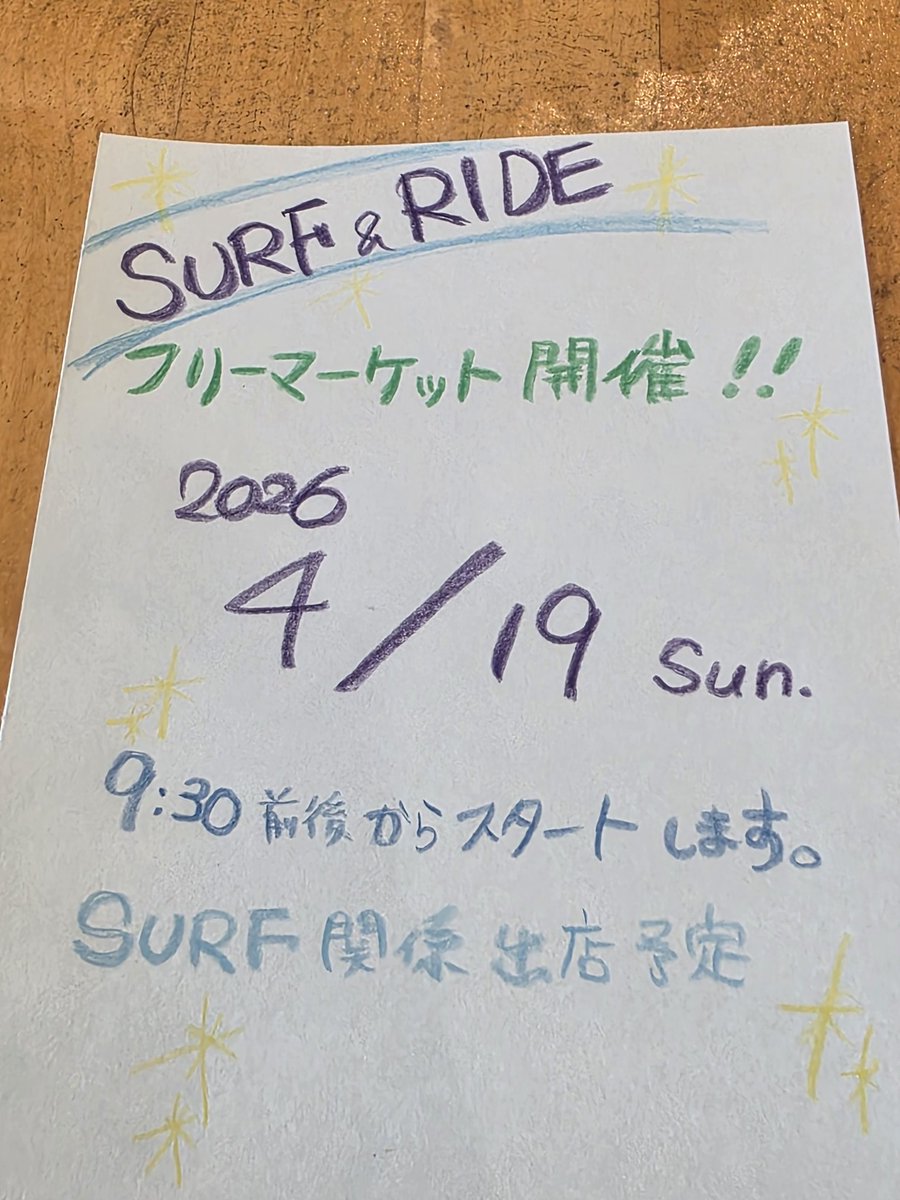 SURF & RIDE
フリーマーケット開催!!
2026
4/19 Sun.
9:30前後からスタートします。
SURF関係出店予定